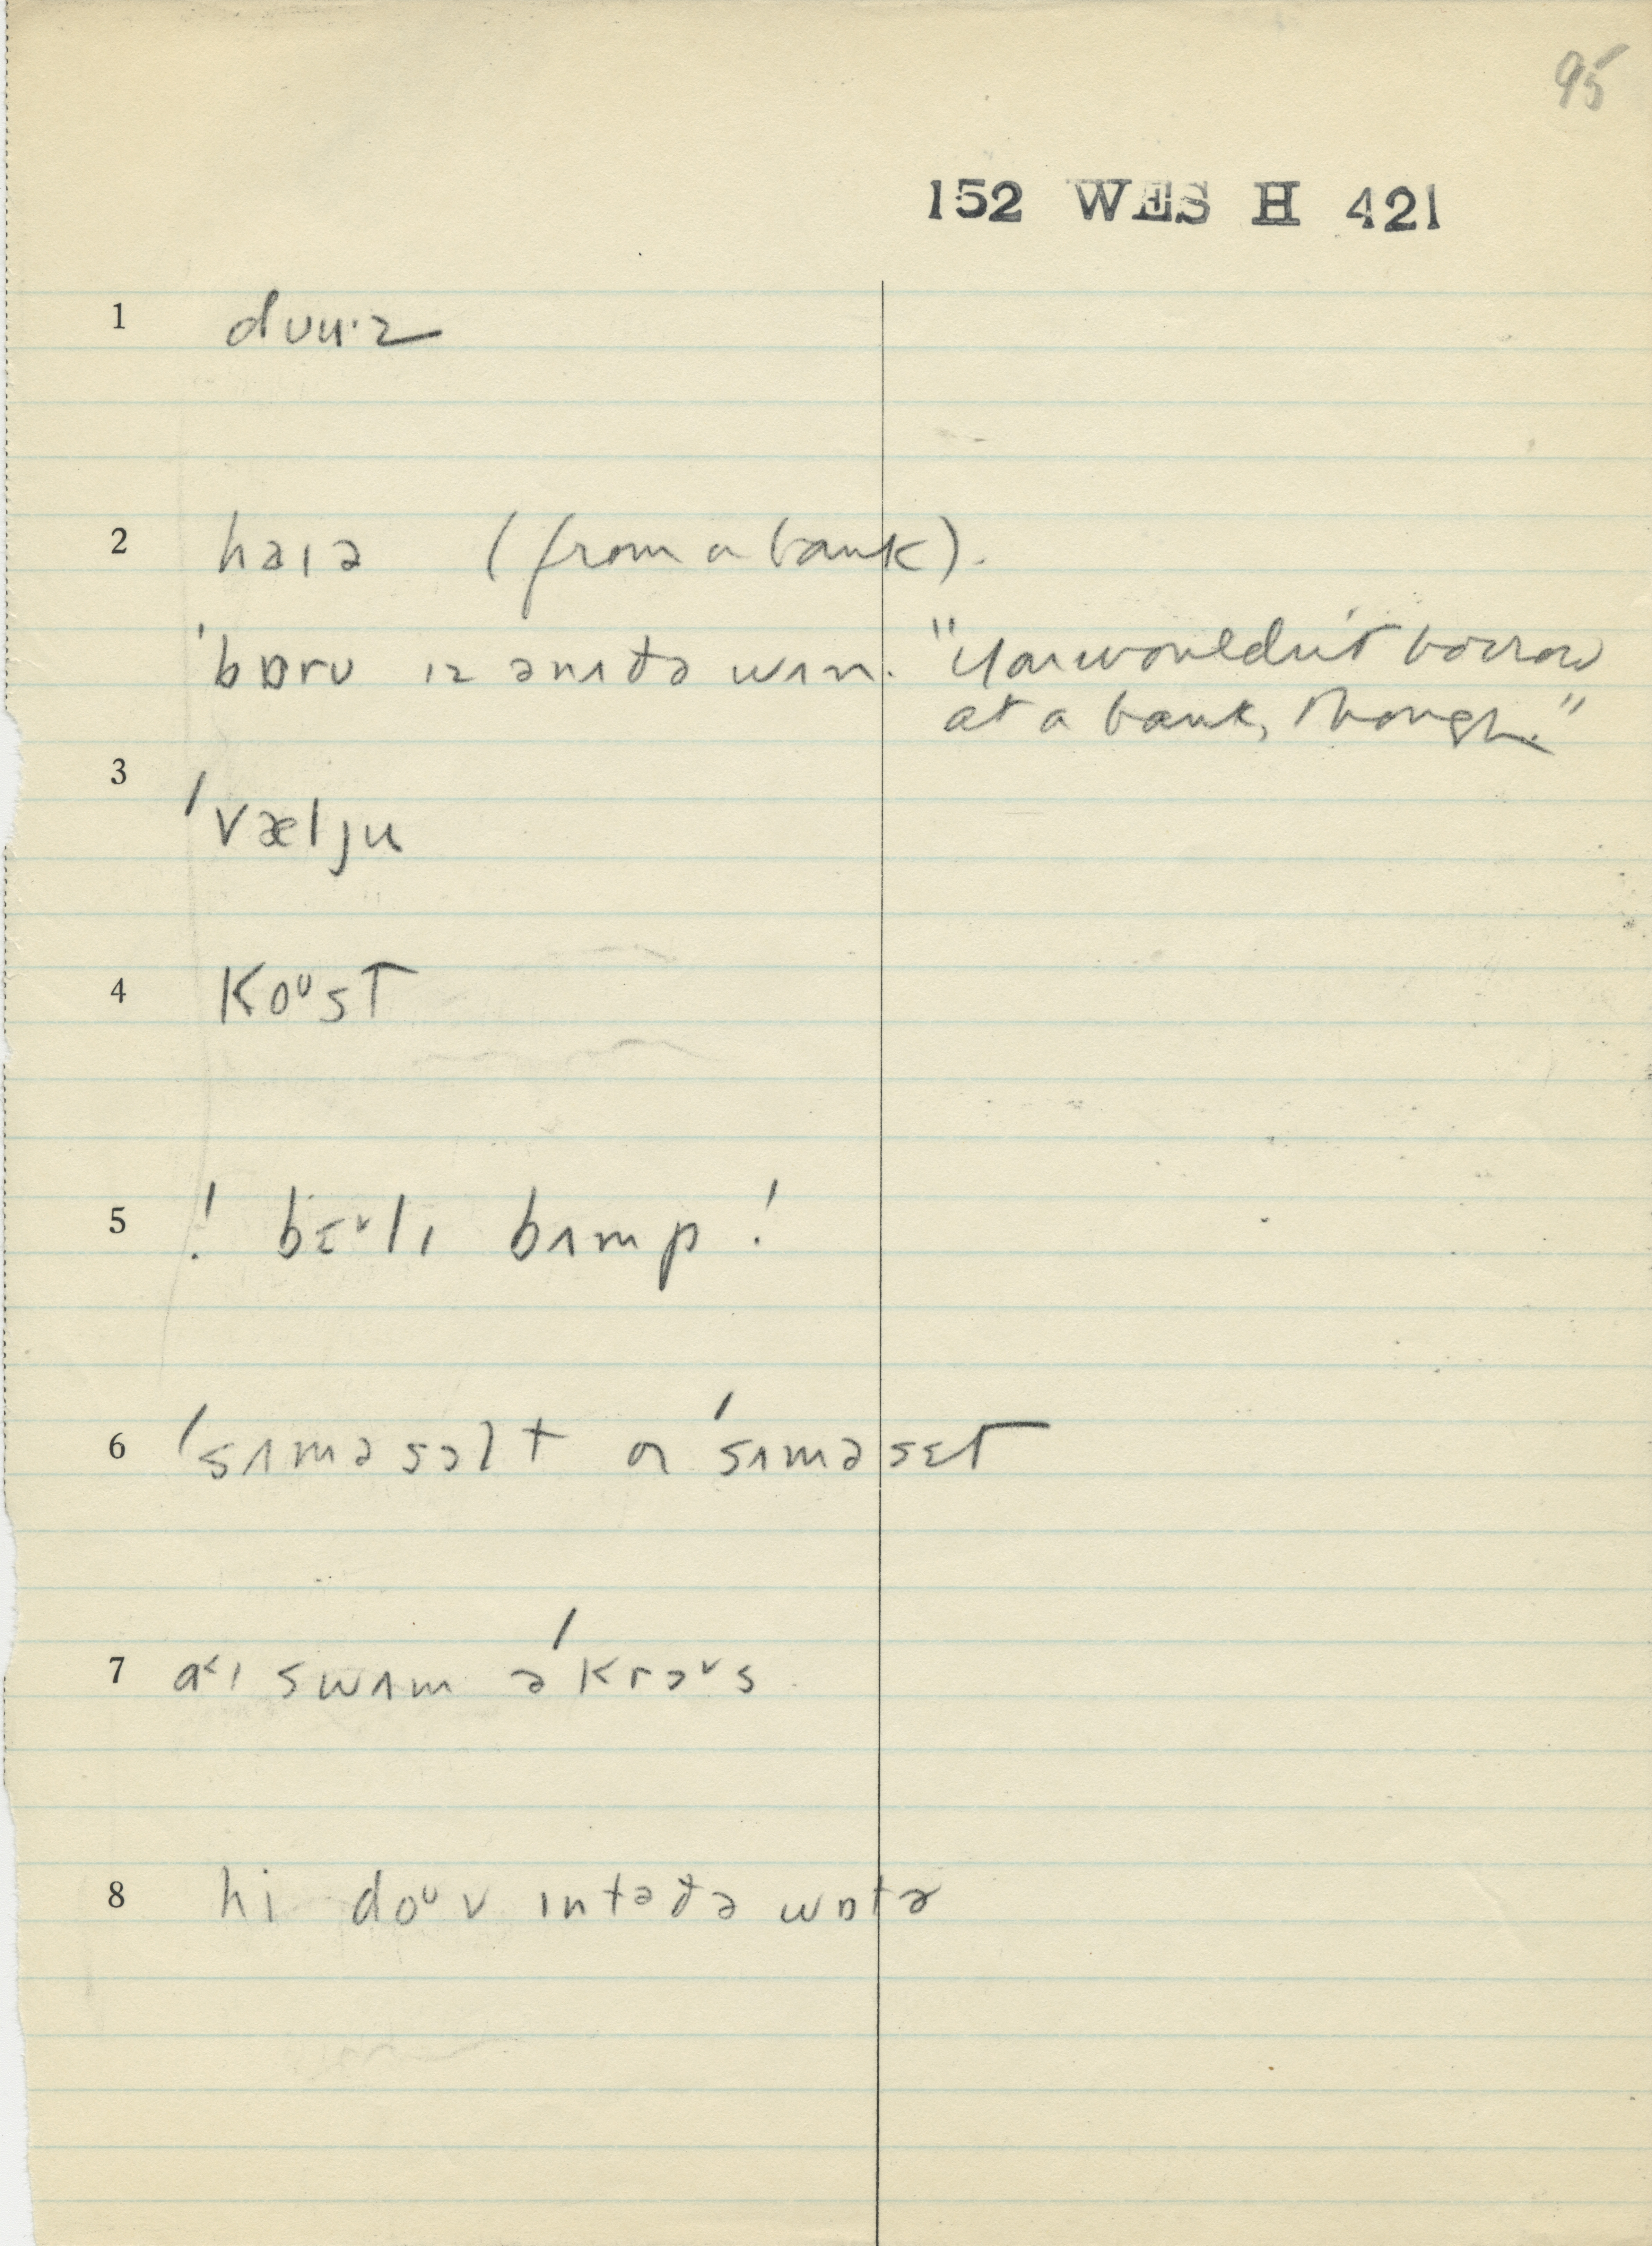 95
152 WES H 421
1 dʊu·z
2 haɪə (from a bank).
ˈbɒrʊ ɪz ənʌðə wʌn. "You wouldn't borrow
at a bank, though."
3 ˈvæljʊ
4 koᵘst
5 ! bɛ˅lɪ bʌmp !
6 ˈsʌməsɔlt or ˈsʌməsɛt
7 ɑ˂ɪ swʌm əˈkrɔ˅s
8 hi doᵘv ɪntəðə wɒtɚ